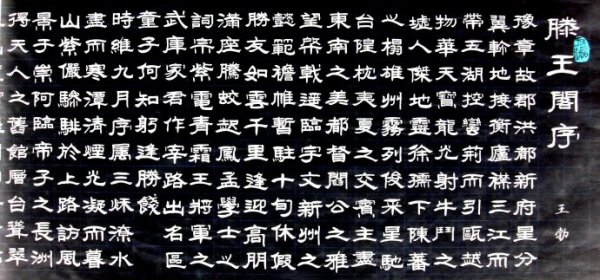 滕王閣序
王勃
豫章故郡洪都新府星分
翼軫地接衡廬襟三江而
帶五湖控蠻荊而引甌越
物華天寶龍光射牛斗之
墟人傑地靈徐孺下陳蕃
之榻雄州霧列俊采星馳
台隍枕夷夏之交賓主盡
東南之美都督閻公之雅
望棨戟遙臨宇文新州之
懿範襜帷暫駐十旬休假
勝友如雲千里逢迎高朋
滿座騰蛟起鳳孟學士之
詞宗紫電青霜王將軍之
武庫家君作宰路出名區
童子何知躬逢勝餞
時維九月序屬三秋潦水
盡而寒潭清煙光凝而暮
山紫儼驂騑於上路訪風
景於崇阿臨帝子之長洲
得天人之舊館層台聳翠